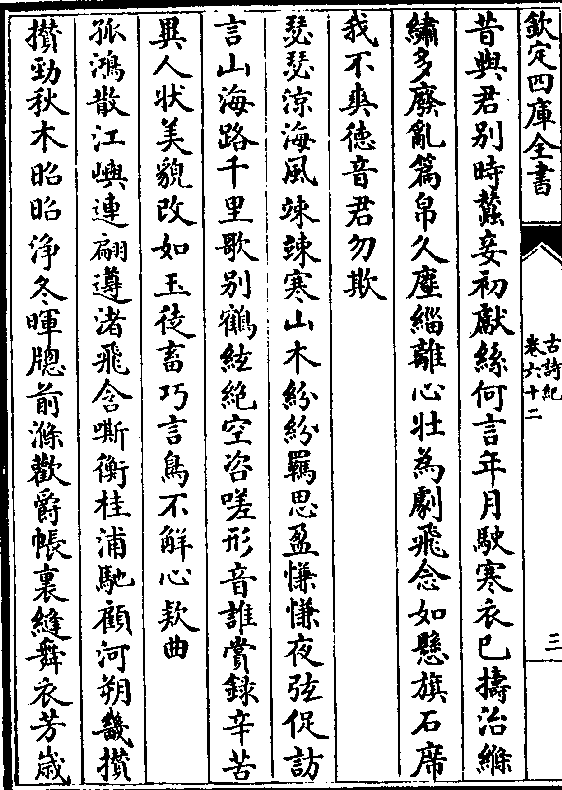 欽定四庫全書
古詩紀
卷六十二
三
昔與君别時蠶妾初獻絲何言年月駛寒衣已擣治絛
繡多廢亂篇帛久塵緇離心壯為劇飛念如懸旗石席
我不爽徳音君勿欺
瑟瑟涼海風竦竦寒山木紛紛羈思盈慊慊夜弦促訪
言山海路千里歌别鶴絃絶空咨嗟形音誰賞録辛苦
異人状美貌改如玉徒畜巧言鳥不解心欵曲
孤鴻散江嶼連翩遵渚飛含嘶衡桂浦馳顧河朔畿攅
攅勁秋木昭昭浄冬暉牕前滌歡爵帳裏縫舞衣芳歳